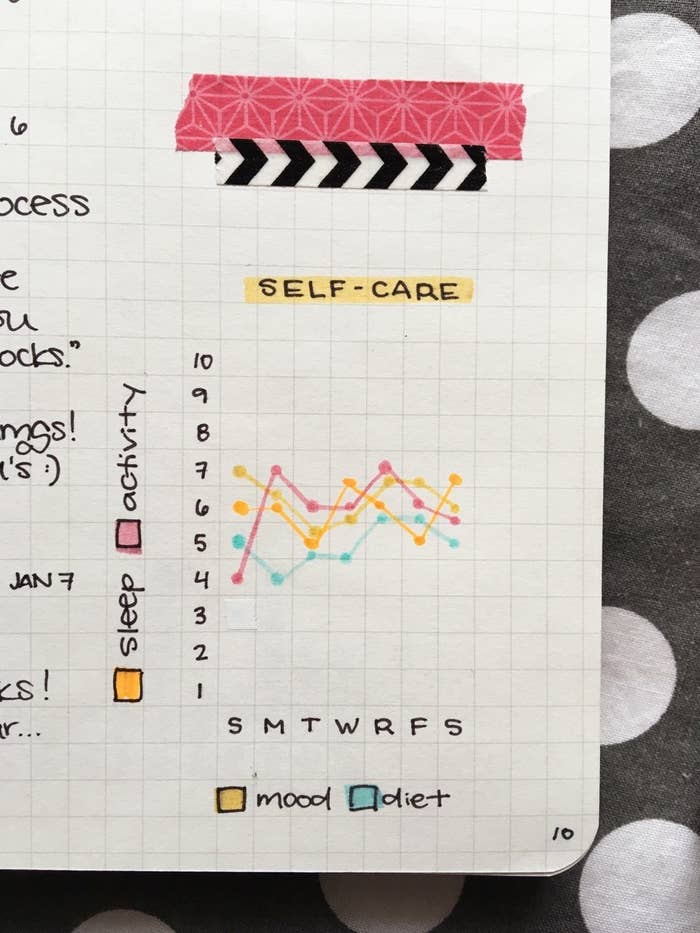 6
ocess
e
ou
ocks."
mgs!
's :)
JAN 7
ks!
r...
SELF-CARE
activity
sleep
10
9
8
7
6
5
4
3
2
1
S M T W R F S
mood diet
10